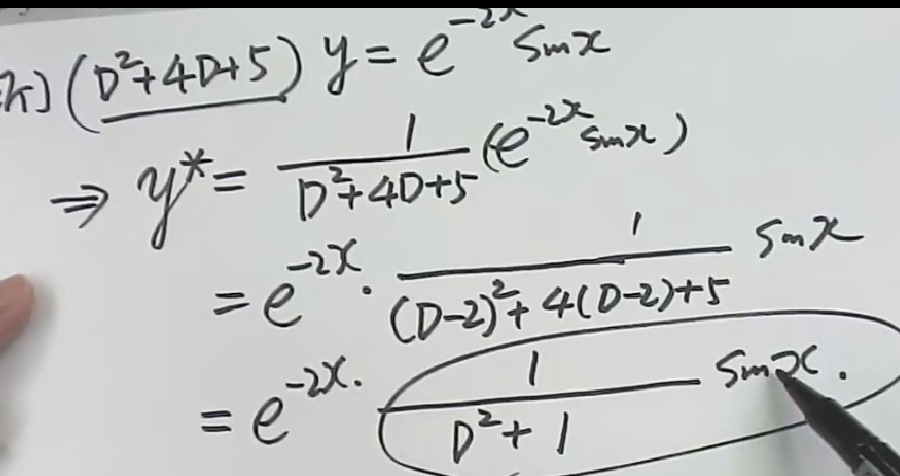 (D²+4D+5) y = e^{-2x} sinx
⇒ y* = \frac{1}{D²+4D+5} (e^{-2x} sinx)
= e^{-2x} · \frac{1}{(D-2)²+4(D-2)+5} sinx
= e^{-2x} · \frac{1}{D²+1} sinx.